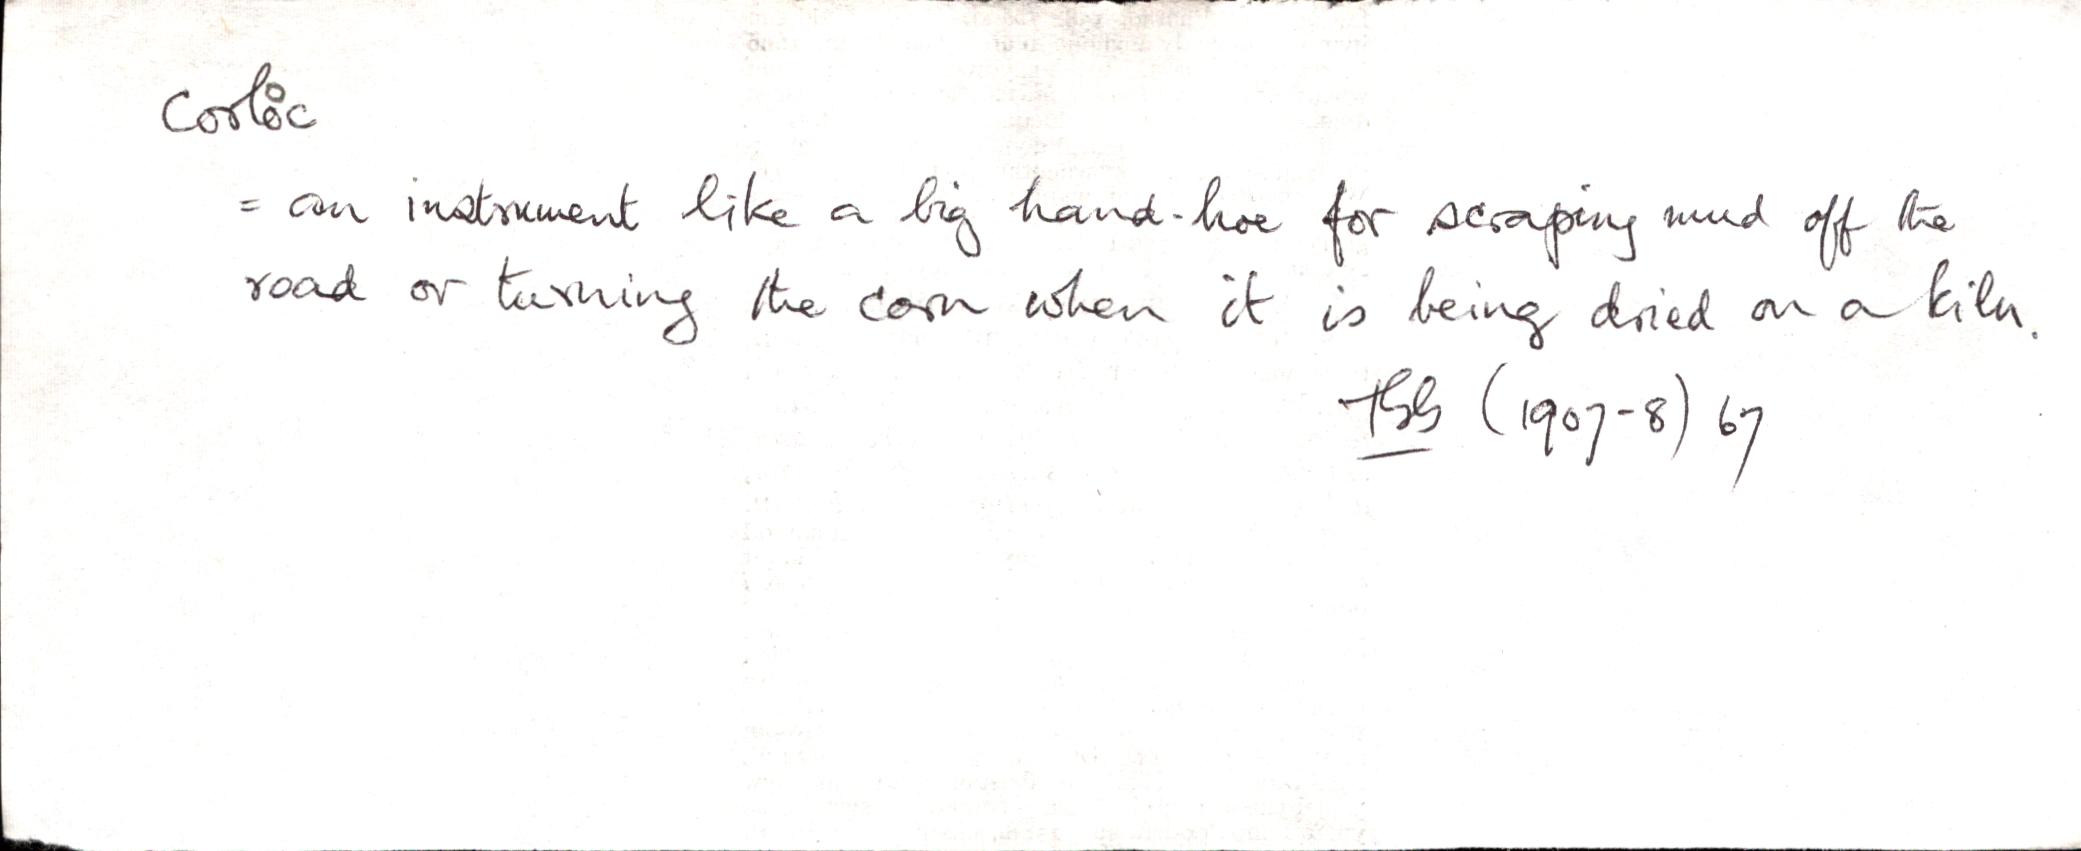 Corlo̊c
= an instrument like a big hand-hoe for scraping mud off the
road or turning the corn when it is being dried on a kiln.
TGG (1907-8) 67